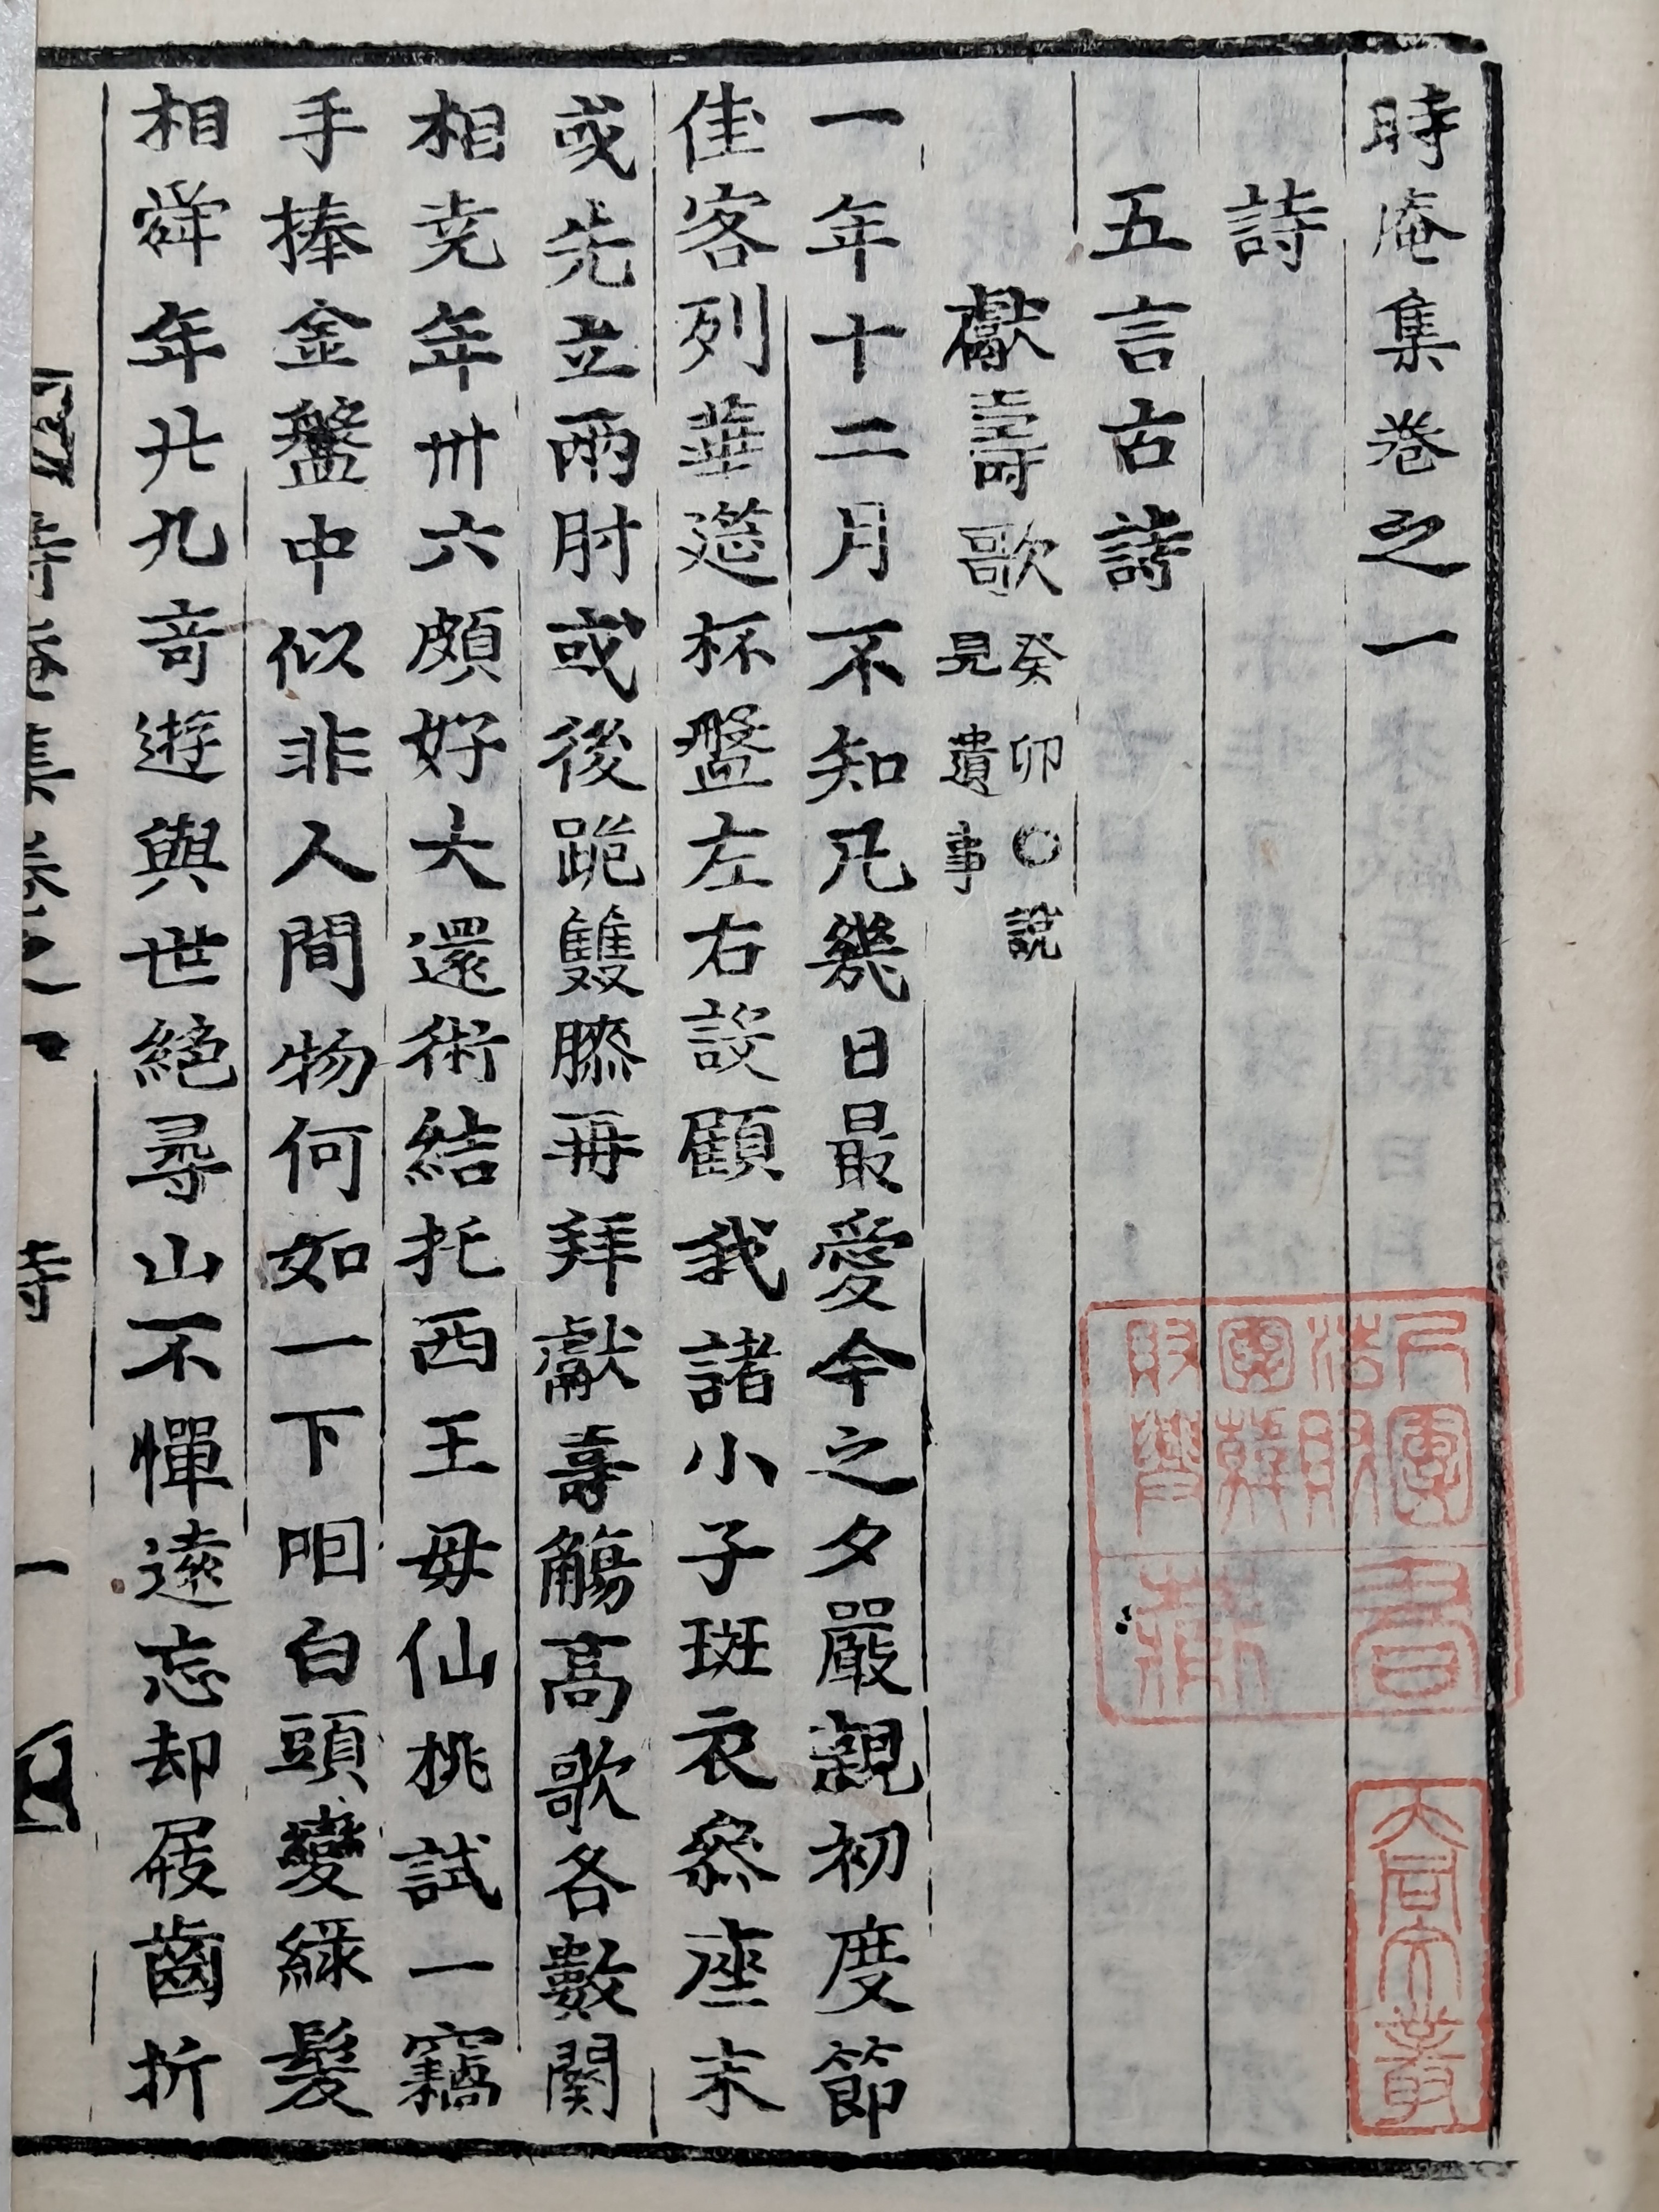 時庵集卷之一
詩
五言古詩
獻壽歌 癸卯○說見遺事
一年十二月不知凡幾日最愛今之夕嚴親初度節
佳客列華筵杯盤左右設顧我諸小子斑衣參座末
或先立兩肘或後跪雙膝再拜獻壽觴高歌各數闋
相尭年卅六頗好大還術結托西王母仙桃試一竊
手捧金盤中似非人間物何如一下咽白頭變綠髮
相舜年廿九竒遊與世絕尋山不憚遠忘却屐齒折
時庵集卷之一 詩 一